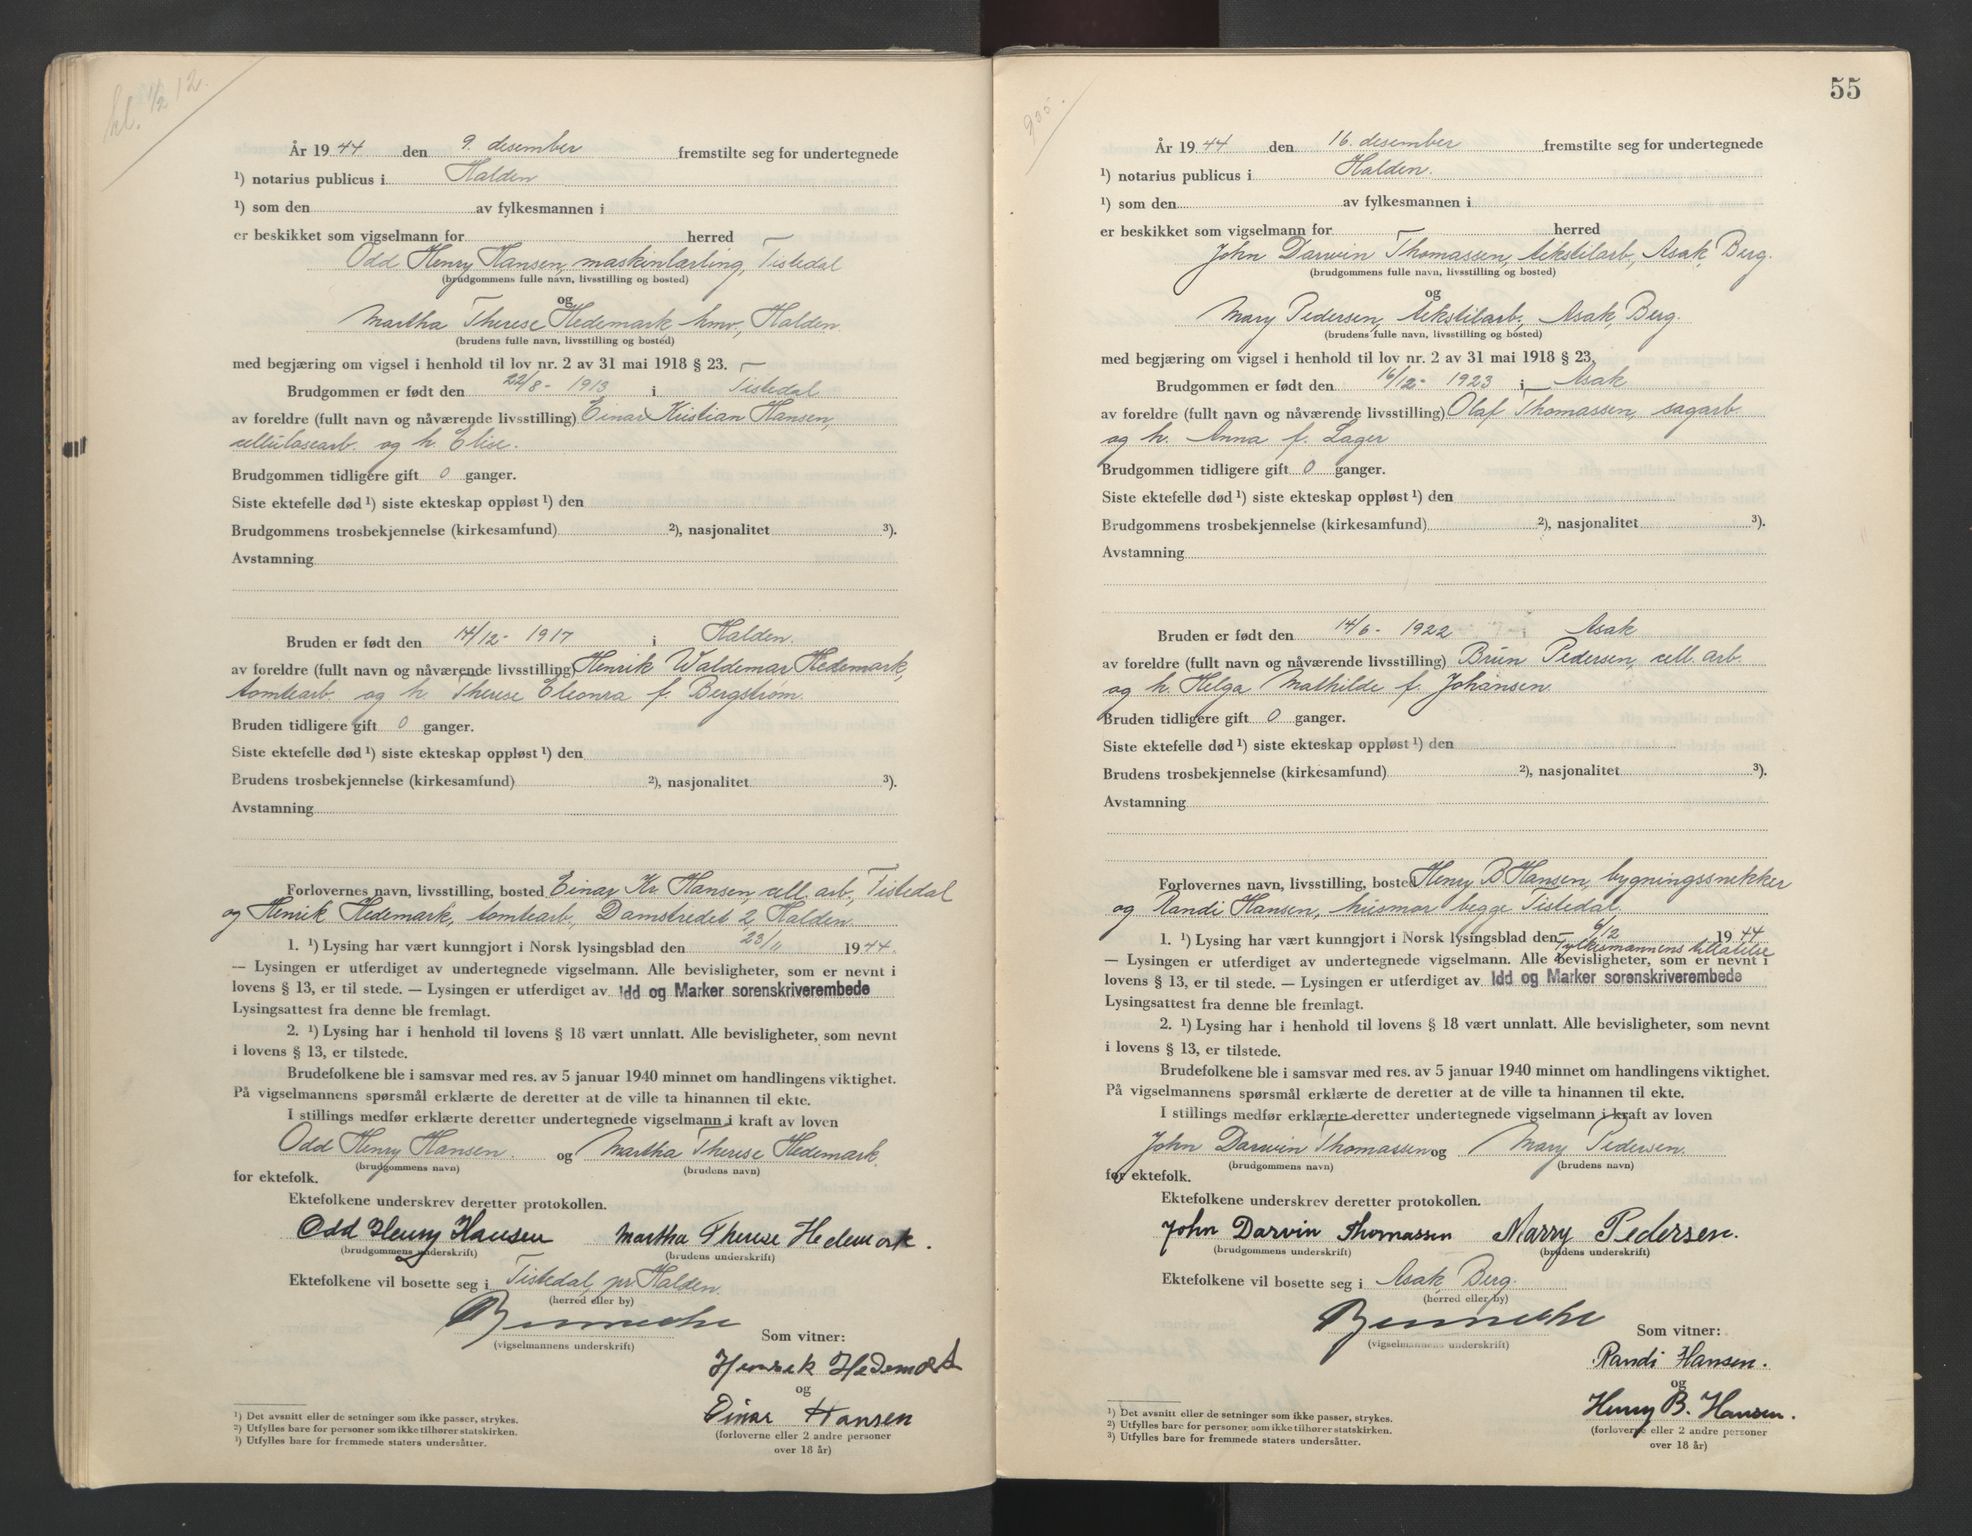 kl. 1/2 12.
År 1944 den 9. desember fremstilte seg for undertegnede
¹) notarius publicus i Halden
¹) som den av fylkesmannen i
er beskikket som vigselmann for herred
Odd Henry Hansen, maskinlærling, Tistedal
(brudgommens fulle navn, livsstilling og bosted)
og
Martha Therese Hedemark hmv, Halden.
(brudens fulle navn, livsstilling og bosted)
med begjæring om vigsel i henhold til lov nr. 2 av 31 mai 1918 § 23.
Brudgommen er født den 22/8 - 1913 i Tistedal
av foreldre (fullt navn og nåværende livsstilling) Einar Kristian Hansen,
cellulosearb. og h. Elise.
Brudgommen tidligere gift 0 ganger.
Siste ektefelle død ¹) siste ekteskap oppløst ¹) den
Brudgommens trosbekjennelse (kirkesamfund) ²), nasjonalitet ³).
Avstamning
Bruden er født den 14/12 - 1917 i Halden.
av foreldre (fullt navn og nåværende livsstilling) Henrik Waldemar Hedemark,
tomtearb. og h. Therese Eleonra f. Bergstrøm.
Bruden tidligere gift 0 ganger.
Siste ektefelle død ¹) siste ekteskap oppløst ¹) den
Brudens trosbekjennelse (kirkesamfund) ²), nasjonalitet ³).
Avstamning
Forlovernes navn, livsstilling, bosted Einar Kr. Hansen, cell. arb., Tistedal
og Henrik Hedemark, tomtearb., Damstredet 2, Halden.
1. ¹) Lysing har vært kunngjort i Norsk lysingsblad den 23/11 1944.
— Lysingen er utferdiget av undertegnede vigselmann. Alle bevisligheter, som er nevnt i
lovens § 13, er til stede. — Lysingen er utferdiget av Idd og Marker sorenskriverembede
Lysingsattest fra denne ble fremlagt.
2. ¹) Lysing har i henhold til lovens § 18 vært unnlatt. Alle bevisligheter, som nevnt
i lovens § 13, er tilstede.
Brudefolkene ble i samsvar med res. av 5 januar 1940 minnet om handlingens viktighet.
På vigselmannens spørsmål erklærte de deretter at de ville ta hinannen til ekte.
I stillings medfør erklærte deretter undertegnede vigselmann i kraft av loven
Odd Henry Hansen. og Martha Therese Hedemark.
(brudgommens navn) (brudens navn)
for ektefolk.
Ektefolkene underskrev deretter protokollen.
Odd Henry Hansen Martha Therese Hedemark.
(brudgommens underskrift) (brudens underskrift)
Ektefolkene vil bosette seg i Tistedal, pr. Halden.
(herred eller by)
(vigselmannens underskrift)
Som vitner:
Henrik Hedemark
og
Einar Hansen
(forloverne eller 2 andre personer
over 18 år)
¹) Det avsnitt eller de setninger som ikke passer, strykes.
²) Utfylles bare for personer som ikke tilhører statskirken.
³) Utfylles bare for fremmede staters undersåtter.
55
År 1944 den 16. desember fremstilte seg for undertegnede
¹) notarius publicus i Halden.
¹) som den av fylkesmannen i
er beskikket som vigselmann for herred
John Darwin Thomassen, tekstilarb., Asak, Berg.
(brudgommens fulle navn, livsstilling og bosted)
og
Mary Pedersen, tekstilarb., Asak, Berg.
(brudens fulle navn, livsstilling og bosted)
med begjæring om vigsel i henhold til lov nr. 2 av 31 mai 1918 § 23.
Brudgommen er født den 16/12 - 1923 i Asak
av foreldre (fullt navn og nåværende livsstilling) Olaf Thomassen, sagarb.
og h. Anna f. Lager
Brudgommen tidligere gift 0 ganger.
Siste ektefelle død ¹) siste ekteskap oppløst ¹) den
Brudgommens trosbekjennelse (kirkesamfund) ²), nasjonalitet ³).
Avstamning
Bruden er født den 14/6 - 1922 i Asak
av foreldre (fullt navn og nåværende livsstilling) Brun Pedersen, cell. arb.
og h. Helga Mathilde f. Johansen.
Bruden tidligere gift 0 ganger.
Siste ektefelle død ¹) siste ekteskap oppløst ¹) den
Brudens trosbekjennelse (kirkesamfund) ²), nasjonalitet ³).
Avstamning
Forlovernes navn, livsstilling, bosted Henry B Hansen, bygningssnekker
og Randi Hansen, husmor begge Tistedal.
1. ¹) Lysing har vært kunngjort i Norsk lysingsblad den 6/12 1944
Fylkesmannens tillatelse
— Lysingen er utferdiget av undertegnede vigselmann. Alle bevisligheter, som er nevnt i
lovens § 13, er til stede. — Lysingen er utferdiget av Idd og Marker sorenskriverembede
Lysingsattest fra denne ble fremlagt.
2. ¹) Lysing har i henhold til lovens § 18 vært unnlatt. Alle bevisligheter, som nevnt
i lovens § 13, er tilstede.
Brudefolkene ble i samsvar med res. av 5 januar 1940 minnet om handlingens viktighet.
På vigselmannens spørsmål erklærte de deretter at de ville ta hinannen til ekte.
I stillings medfør erklærte deretter undertegnede vigselmann i kraft av loven
John Darwin Thomassen og Mary Pedersen.
(brudgommens navn) (brudens navn)
for ektefolk.
Ektefolkene underskrev deretter protokollen.
John Darvin Thomassen Marry Pedersen.
(brudgommens underskrift) (brudens underskrift)
Ektefolkene vil bosette seg i Asak, Berg.
(herred eller by)
(vigselmannens underskrift)
Som vitner:
Randi Hansen.
og
Henry B. Hansen.
(forloverne eller 2 andre personer
over 18 år)
¹) Det avsnitt eller de setninger som ikke passer, strykes.
²) Utfylles bare for personer som ikke tilhører statskirken.
³) Utfylles bare for fremmede staters undersåtter.